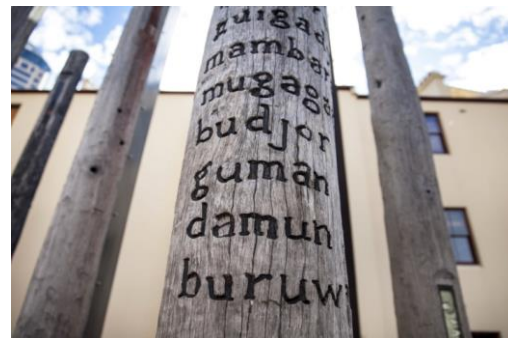 mambar
mugaga
budjor
guman
damun
buruw